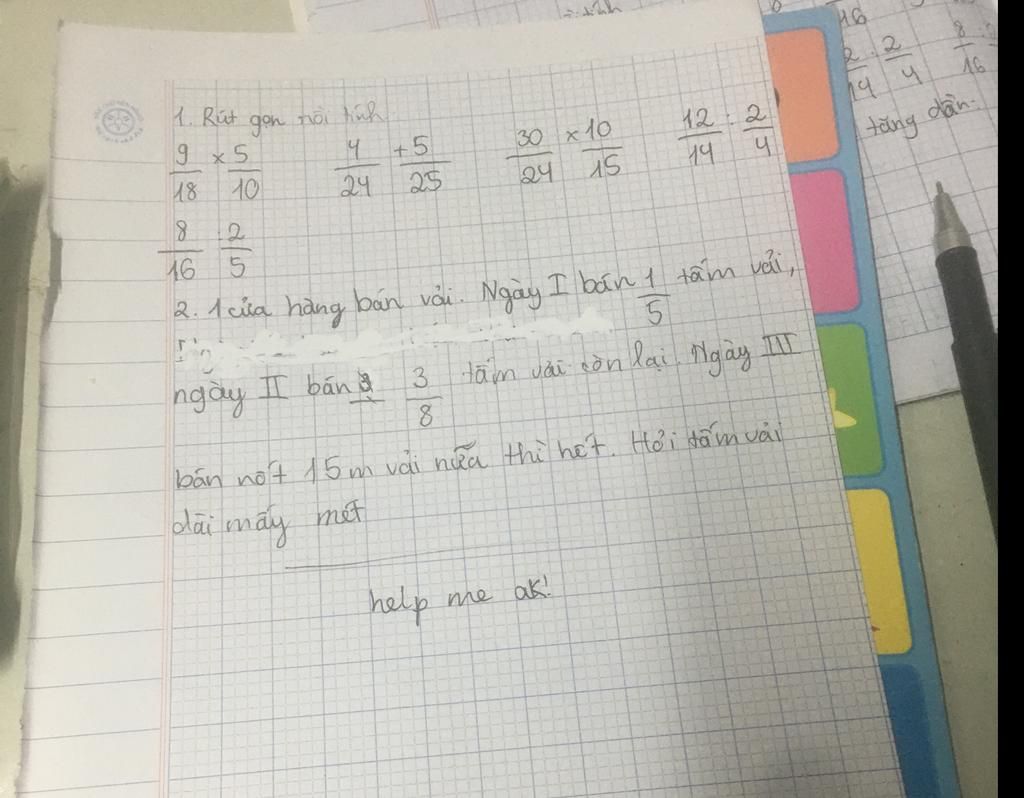 1. Rút gọn rồi tính
9/18 × 5/10 4/24 + 5/25 30/24 × 10/15 12/14 : 2/4
8/16 : 2/5
2. 1 cửa hàng bán vải. Ngày I bán 1/5 tấm vải,
ngày II bán 3/8 tấm vải còn lại. Ngày III
bán nốt 15m vải nữa thì hết. Hỏi tấm vải
dài mấy mét
help me ak!
16
2/14 : 2/4 8/16
tăng dần.